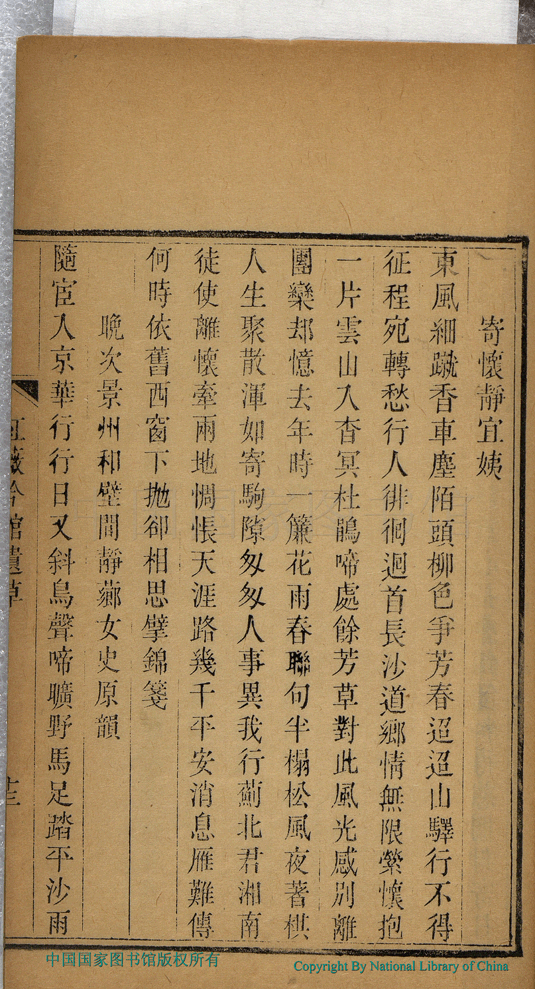 寄懷靜宜姨
東風細蹴香車塵陌頭柳色爭芳春迢迢山驛行不得
征程宛轉愁行人徘徊迴首長沙道鄉情無限縈懷抱
一片雲山入杳冥杜鵑啼處餘芳草對此風光感別離
團欒却憶去年時一簾花雨春聯句半榻松風夜著棋
人生聚散渾如寄駒隙匆匆人事異我行薊北君湘南
徒使離懷牽兩地惆悵天涯路幾千平安消息雁難傳
何時依舊西窗下拋卻相思擘錦箋
晚次景州和壁間靜薌女史原韻
隨宦入京華行行日又斜鳥聲啼曠野馬足踏平沙雨
紅薇吟館遺草
十三
中国国家图书馆版权所有
Copyright By National Library of China